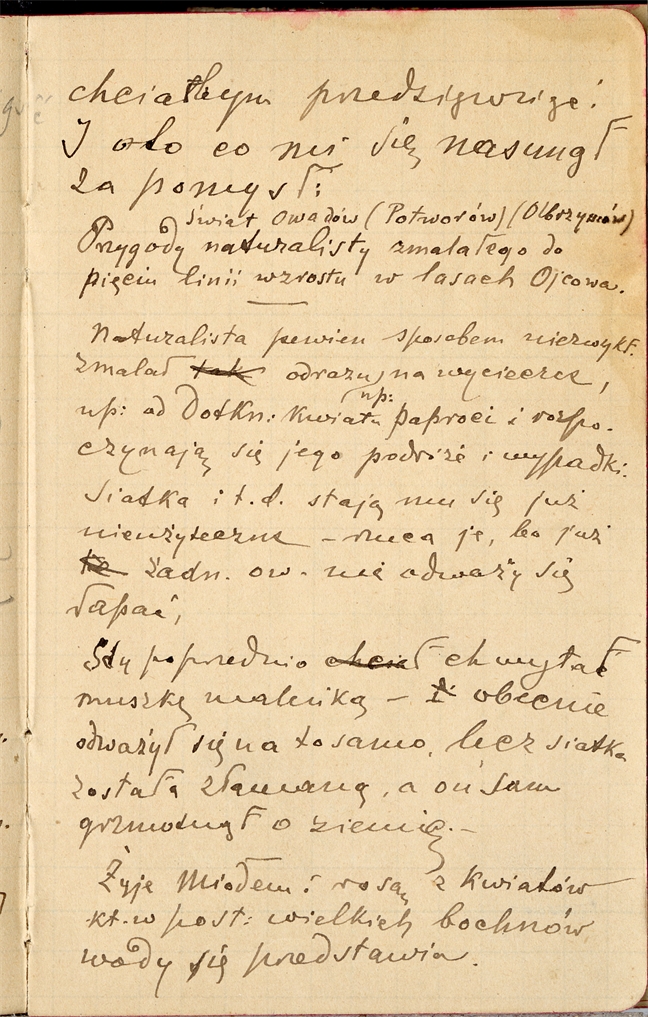 chciałbym przedsięwziąć!
I oto co mi się nasunął
za pomysł:
Świat Owadów (Potworów) (Olbrzymów)
Przygody naturalisty zmalałego do
pięciu linii wzrostu w lasach Ojcowa.
Naturalista pewien sposobem niezwykł.
zmalał tak odrazu, na wycieczce,
np:
np: od Dotkn: Kwiatu paproci i rozpo-
czynają się jego podróże i wypadki.
Siatka i t. d. stają mu się już
nieużyteczne – rzuca je, bo już
żadn. ow. nie odważy się
łapać,
Gdy poprzednio chciał chwytał
muszkę maleńką – obecnie
odważył się na to samo, lecz siatka
została złamaną, a on sam
grzmotnął o ziemię. –
Żyje Miodem i rosą z Kwiatów
kt. w post: wielkich bochnów
wody się przedstawia.